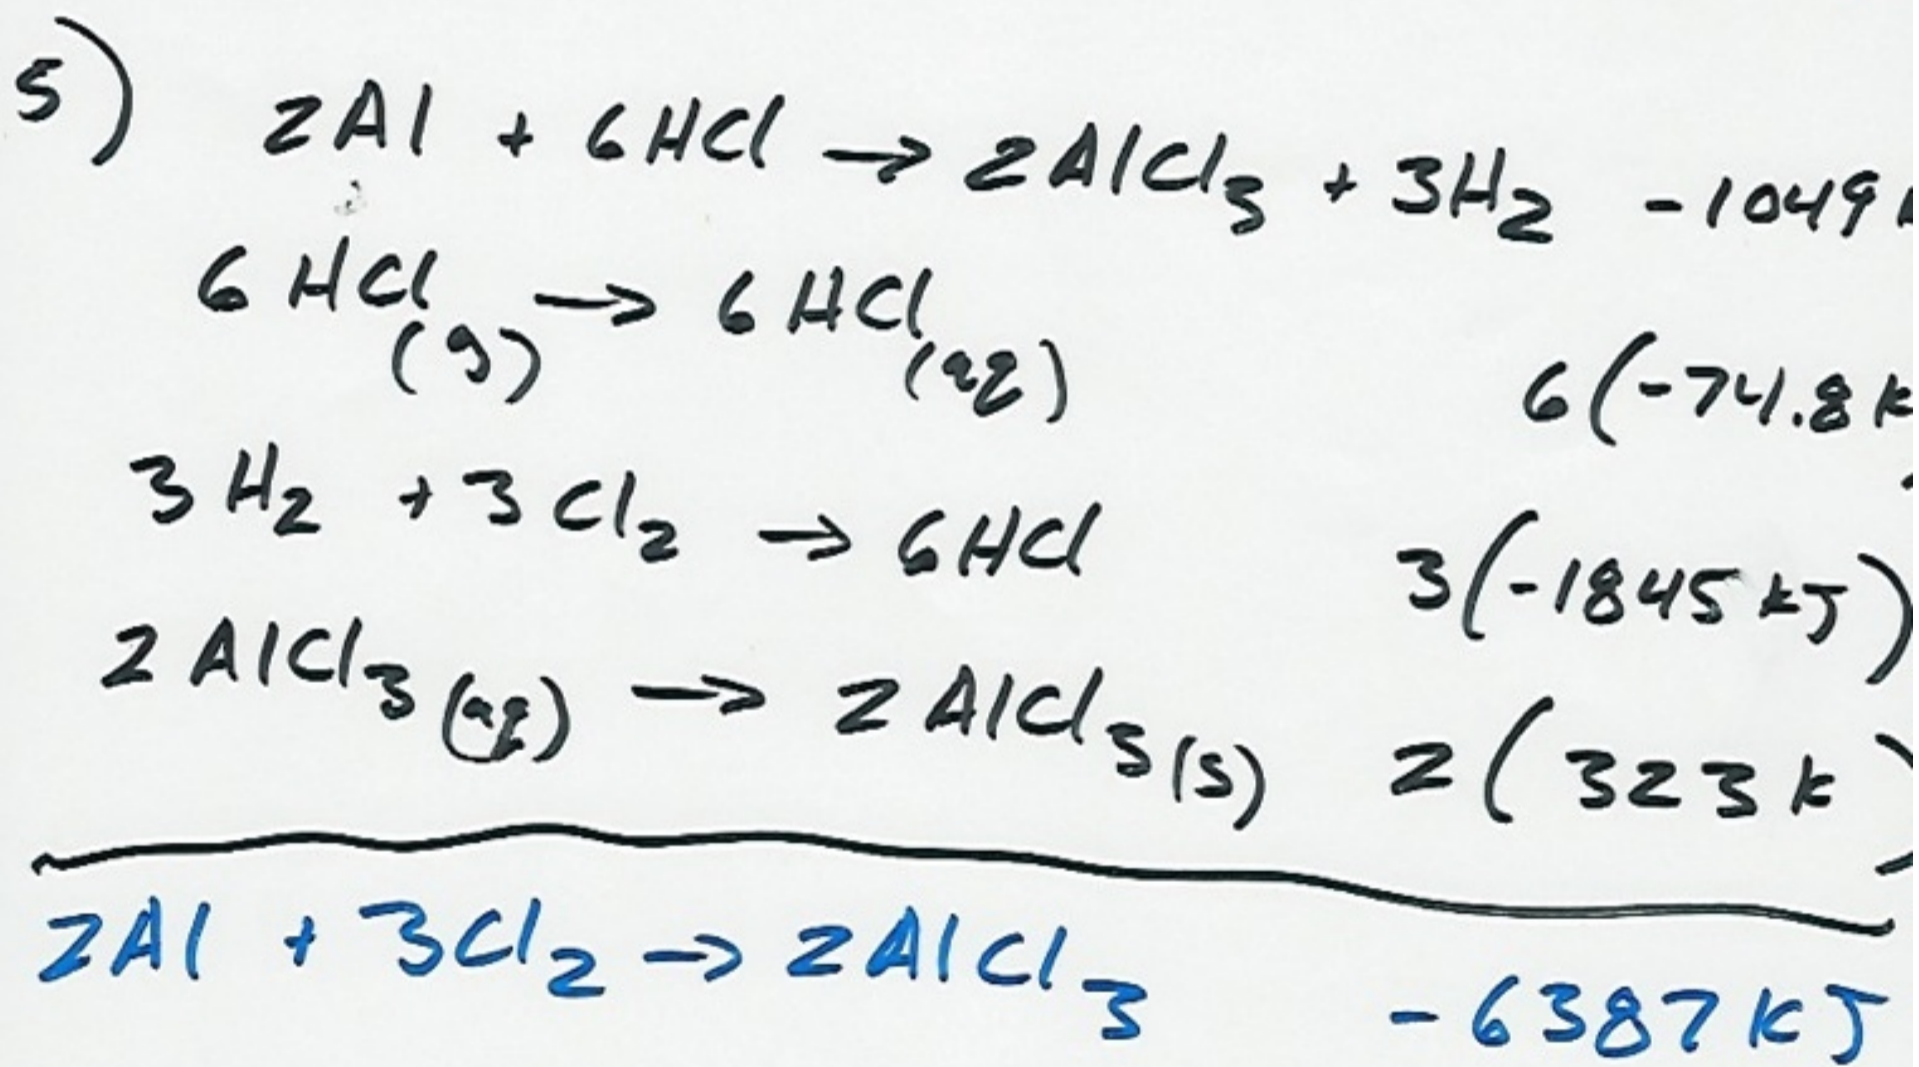 5) 2Al + 6HCl → 2AlCl3 + 3H2 -1049
6 HCl(g) → 6 HCl(aq) 6(-74.8 k
3 H2 + 3 Cl2 → 6HCl 3(-1845 kJ)
2 AlCl3(aq) → 2 AlCl3(s) 2(323 k)
2Al + 3Cl2 → 2AlCl3 -6387 kJ